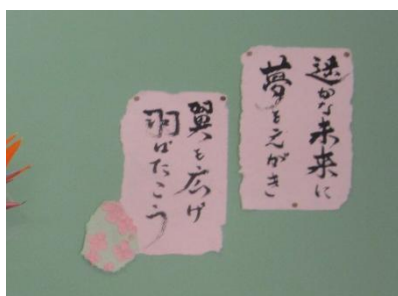 遥かな未来に
夢をえがき
翼を広げ
羽ばたこう